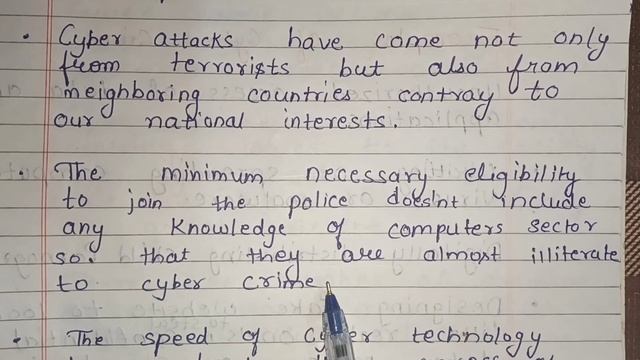 • Cyber attacks have come not only
from terrorists but also from
neighboring countries contray to
our national interests.
• The minimum necessary eligibility
to join the police does'nt include
any knowledge of computers sector
so. that they are almost illiterate
to cyber crime
• The speed of cyber technology